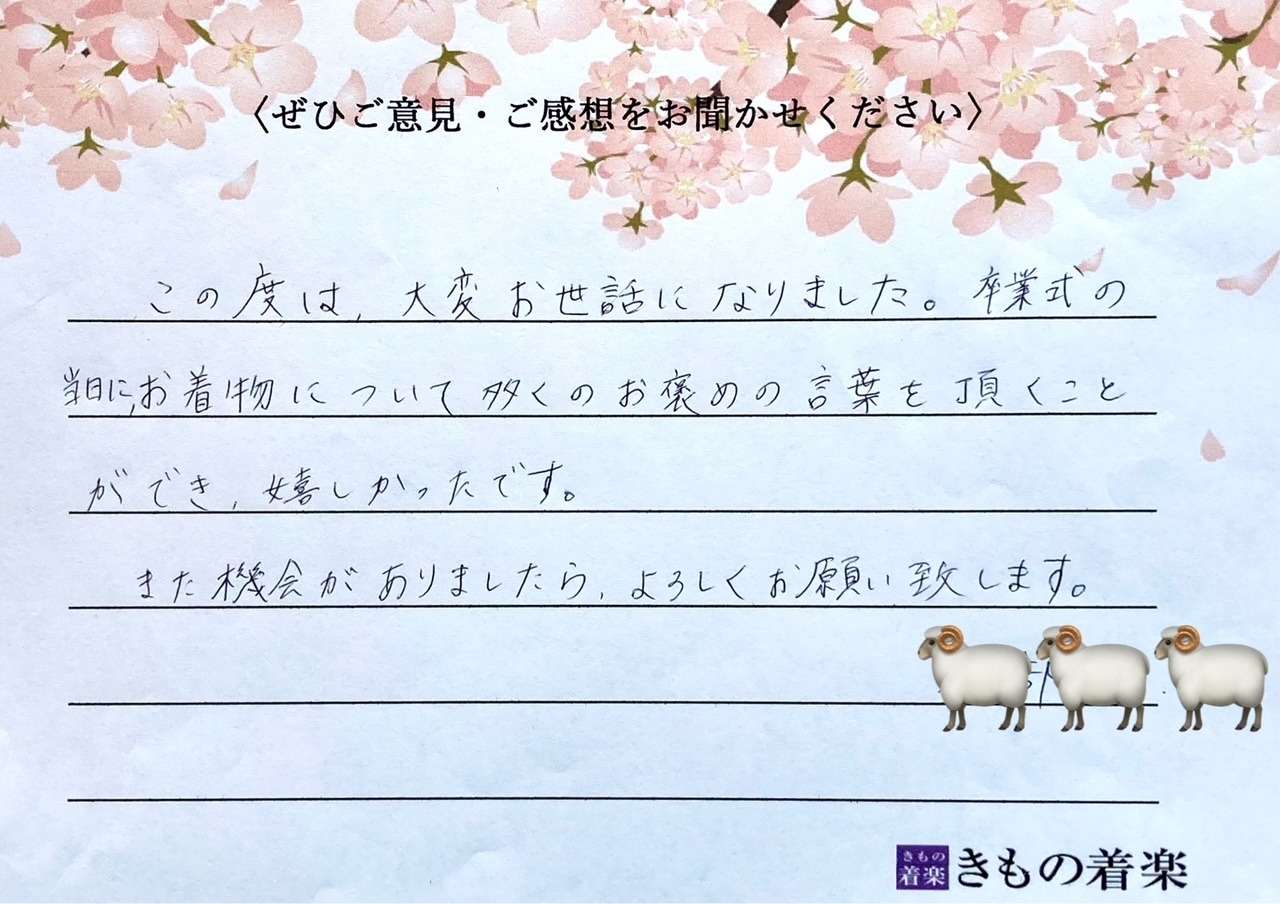 〈ぜひご意見・ご感想をお聞かせください〉
この度は、大変お世話になりました。卒業式の
当日に、お着物について多くのお褒めの言葉を頂くこと
ができ、嬉しかったです。
また機会がありましたら、よろしくお願い致します。
きもの
着楽
きもの着楽